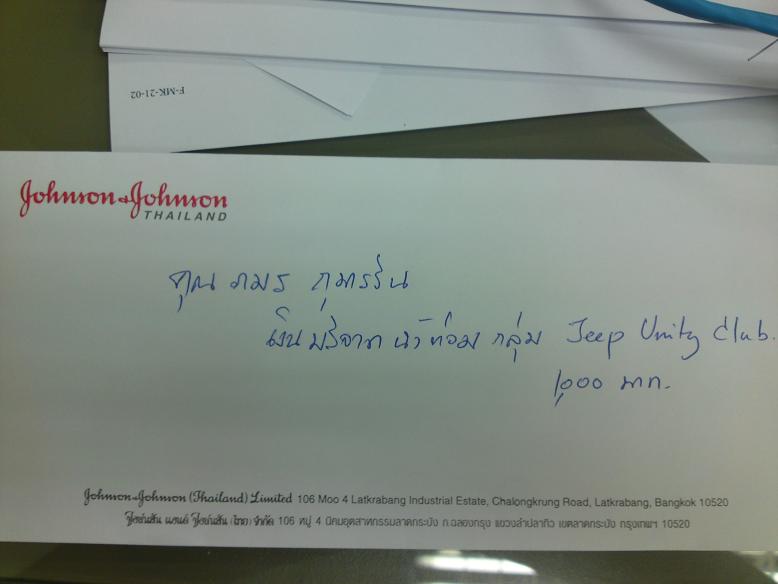 F-MK-21-02
Johnson & Johnson
THAILAND
คุณ ภมร
เงินบริจาค น้ำท่วม กลุ่ม Jeep Unity Club.
1,000 บาท.
Johnson & Johnson (Thailand) Limited 106 Moo 4 Latkrabang Industrial Estate, Chalongkrung Road, Latkrabang, Bangkok 10520
จอห์นสัน แอนด์ จอห์นสัน (ไทย) จำกัด 106 หมู่ 4 นิคมอุตสาหกรรมลาดกระบัง ถ.ฉลองกรุง แขวงลำปลาทิว เขตลาดกระบัง กรุงเทพฯ 10520